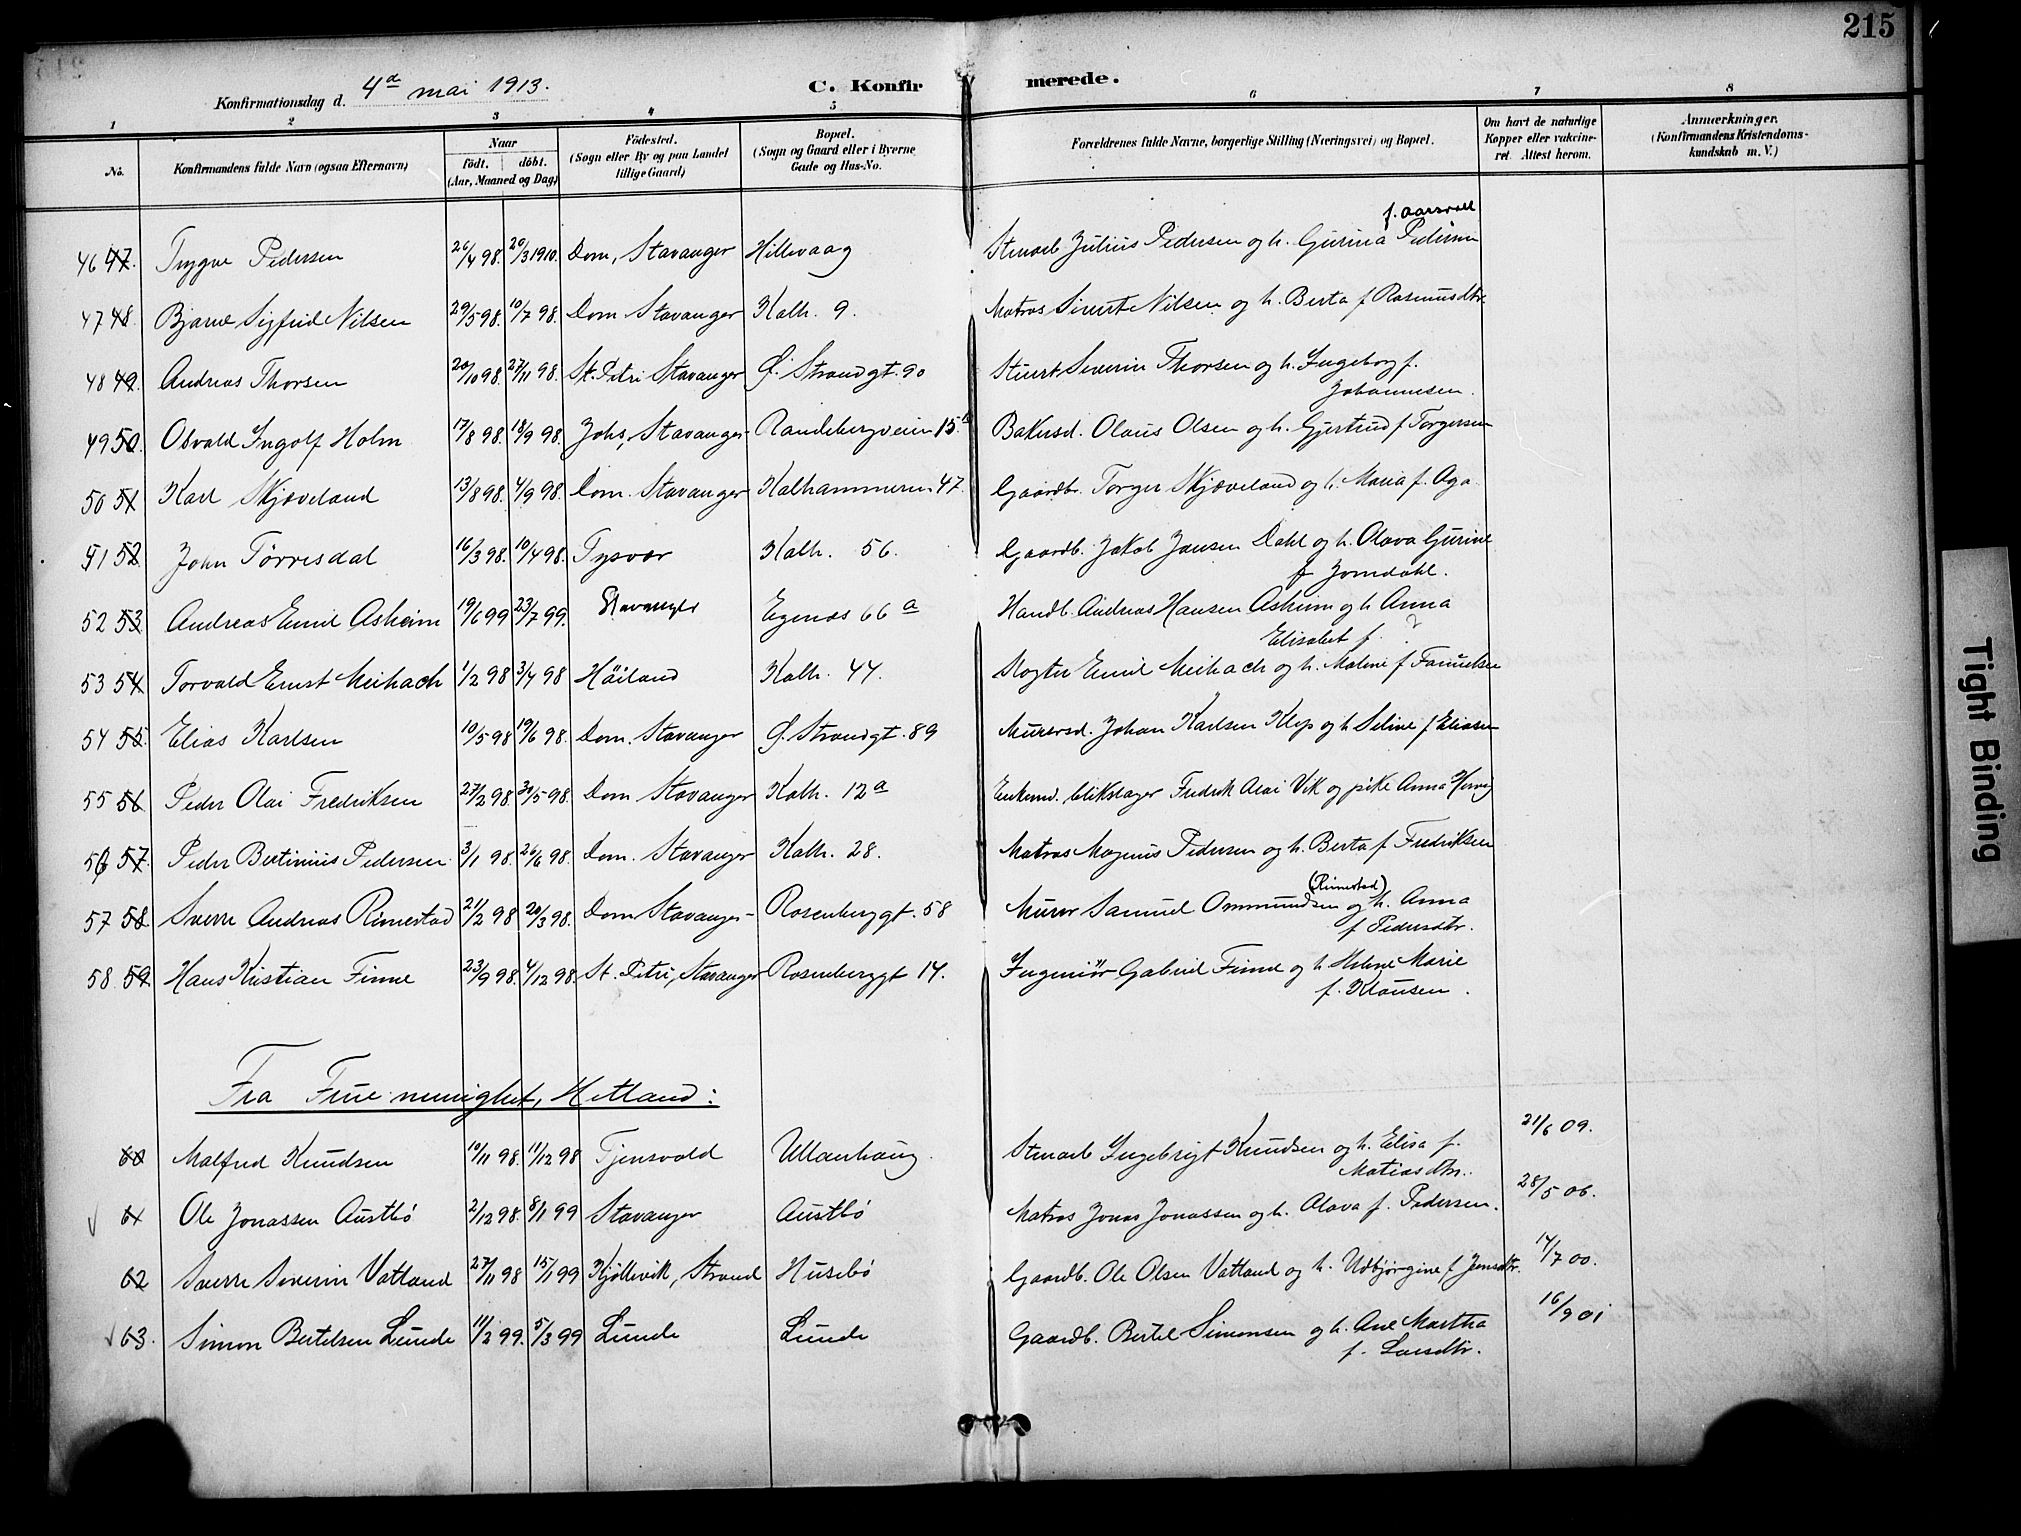 215
Konfirmationsdag d. 4de mai 1913. C. Konfirmerede.
1 2 3 4 5 6 7 8
No. Konfirmandens fulde Navn (ogsaa Efternavn) Naar födt. döbt. (Aar, Maaned og Dag) Födested. (Sogn eller By og paa Landet tillige Gaard) Bopæl. (Sogn og Gaard eller i Byerne Gade og Hus-No. Forældrenes fulde Navne, borgerlige Stilling (Næringsvei) og Bopæl. Om havt de naturlige Kopper eller vakcineret. Attest herom. Anmærkninger. (Konfirmandens Kristendomskundskab m. V.)
f. Aarsvoll
46 47. Trygve Pedersen 26/4 98. 20/3 1910. Dom, Stavanger Hillevaag Stuearb. Julius Pedersen og h. Gurina Pedersen
47 48. Bjarne Sigfred Nilsen 29/5 98. 10/7 98. Dom. Stavanger Kalh. 9. Matros Sivert Nilsen og h. Berta f Rasmusdtr
48 49. Andreas Thorsen 20/10 98. 27/11 98. St. Petri Stavanger Ø. Strandgt. 90 Stuert Severin Thorsen og h. Ingeborg f.
Johannesen.
49 50. Osvald Ingolf Holm 17/8 98. 18/9 98. Johs, Stavanger Randebergveien 15. Bakersd. Olaus Olsen og h. Gjertrud f Torgersen
50 51 Karl Skjæveland 13/8 98. 4/9 98. Dom. Stavanger Kalhammeren 47. Gaardbr. Torger Skjæveland og h. Maria f. Aga.
51 52 John Tørresdal 16/3 98. 10/4 98. Tysvær Kalh. 56. Gaardb. Jakob Jansen Dahl og h. Olava Gurine
f Jomdahl.
52 53 Andreas Emil Asheim 19/6 99 23/7 99. Stavanger Egenæs 66 a Handb. Andreas Hansen Asheim og h Anna
Elisabet f. ?
53 54 Torvald Ernst Meihach 1/2 98 3/4 98 Höiland Kalh. 44. Røgter Emil Meihach og h. Malene f
54 55. Elias Karlsen 10/5 98 19/6 98. Dom. Stavanger Ø. Strandgt. 89 Murersd. Johan Karlsen Klep og h Seline f Eliasen
55 56 Peder Olai Fredriksen 27/2 98 30/5 98. Dom Stavanger Kalh. 12 a Enkemd. blikslager Fredrik Olai Vik og pike Anna
56 57. Peder Bertinius Pedersen 3/1 98. 26/6 98. Dom. Stavanger Kalh. 28. Matros Magnus Pedersen og h. Berta f Fredriksen
57 58. Sverre Andreas Rimestad 21/2 98 20/3 98. Dom Stavanger Rosenberggt. 58 Murer Samuel Ommundsen (Rimestad) og h. Anna
f Pedersdtr.
58 59. Hans Kristian Finne 23/9 98. 4/12 98. St. Petri, Stavanger Rosenberggt 14. Ingeniör Gabriel Finne og h Helene Marie
f. Klausen.
Fra Frue menighet, Hetland:
60 Malfred Knudsen 19/11 98. 11/12 98 Tjensvold Ullanhaug Stuearb Ingebrigt Knudsen og h. Elisa f. 21/6 09.
Matiasdtr.
61 Ole Jonassen Austbö 2/12 98. 8/1 99 Stavanger Austbö Matros Jonas Jonassen og h. Olava f. Pedersen. 28/5 06.
62 Sverre Severin Vatland 27/11 98 15/1 99 Kjöllevik, Strand Husebö Gaardb. Ole Olsen Vatland og h. Udbjørgine f Jensdtr. 17/7 00.
63. Simon Bertelsen Lunde 11/2 99. 5/3 99 Lunde Lunde Gaardb. Bertel Simonsen og h. Ane Martha 16/9 01
f. Larsdtr.
Tight Binding